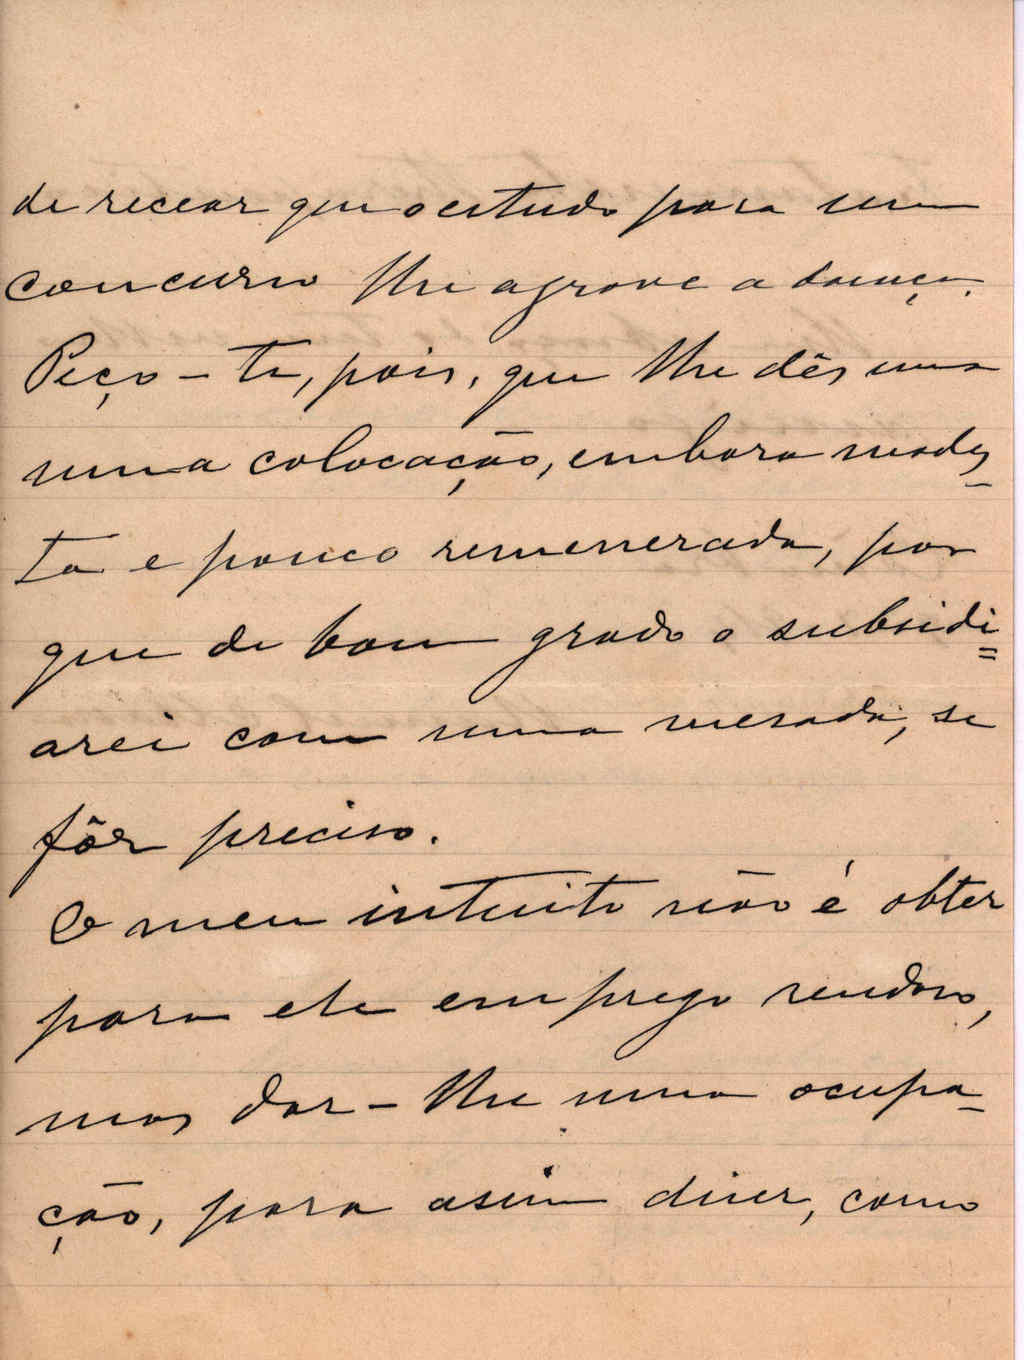 de recear que o estudo para um
concurso lhe agrave a doença.
Peço-te, pois, que lhe dês uma
uma colocação, embora modes-
ta e pouco remenerada, por
que de bom grado o subsidi=
arei com uma mesada, se
fôr preciso.
O meu intuito não é obter
para ele emprego rendoso,
mas dar-lhe uma ocupa-
ção, para assim dizer, como